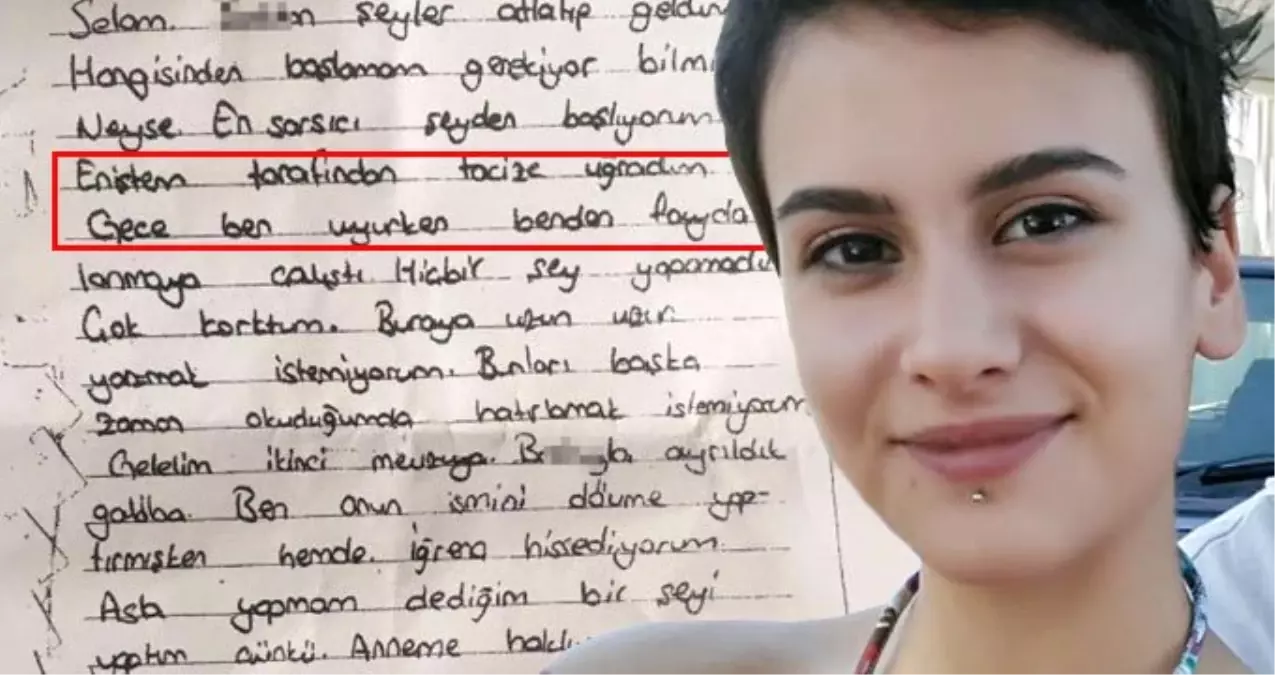 Selam. n şeyler atlatıp geldim
Hangisinden başlamam gerekiyor bilmi
Neyse. En sarsıcı şeyden başlıyorum
Eniştem tarafından tacize uğradım
Gece ben uyurken benden fayda
lanmaya çalıştı. Hiçbir şey yapamadı
Çok korktum. Buraya uzun uzun
yazmak istemiyorum. Bunları başka
zaman okuduğumda hatırlamak istemiyorum
Gelelim ikinci mevzuya. B yla ayrıldık
galiba. Ben onun ismini dövme yap-
tırmışken hemde. İğrenç hissediyorum.
Asla yapmam dediğim bir şeyi
yaptım çünkü. Anneme haklı